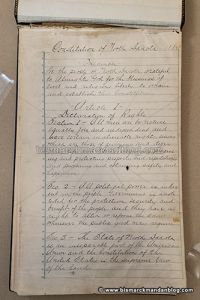 Constitution of North Dakota
Preamble
We the people of North Dakota, grateful
to Almighty God for the blessings of
civil and religious liberty, do ordain
and establish this Constitution.
Article 1-
Declaration of Rights
Section 1 - All men are by nature
equally free and independent and
have certain inalienable rights, among
which are those of enjoying and
ing and protecting property and reputation
and pursuing and obtaining safety and
happiness.
Sec 2 - All political power is inher-
ent in the people. Government is insti-
tuted for the protection, security and
benefit of the people, and they have a
right to alter or reform the same
whenever the public good may require
Sec 3 - The State of North Dakota
is an inseparable part of the American
Union and the Constitution of the
United States is the supreme law
of the land.
www.bismarckmandanblog.com
© www.bismarckmandanblog.com